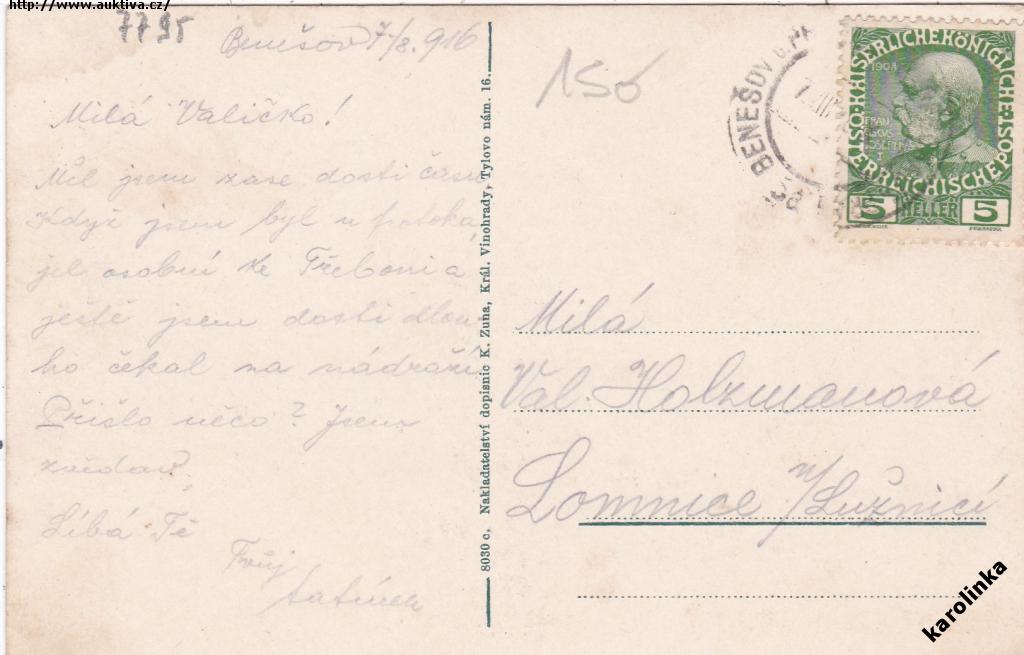 http://www.auktiva.cz/
7795
Benešov 7/8. 916
Milá Valičko!
Měl jsem zase dosti času
Když jsem byl u
jel osobní ke Třeboni a
ještě jsem dosti dlou-
ho čekal na nádraží
Přišlo něco? Jsem
zvědav.
Líbá Tě
Tvůj
tatínek
8030 c. Nakladatelství dopisnic K. Zuna, Král. Vinohrady, Tylovo nám. 16.
150
BENEŠOV U PR
KAISERLICHE KÖNIGLICHE
ÖSTERREICHISCHE POST
1908
5 HELLER 5
Milá
Val. Holzmanová
Lomnice n/Lužnicí
karolinka